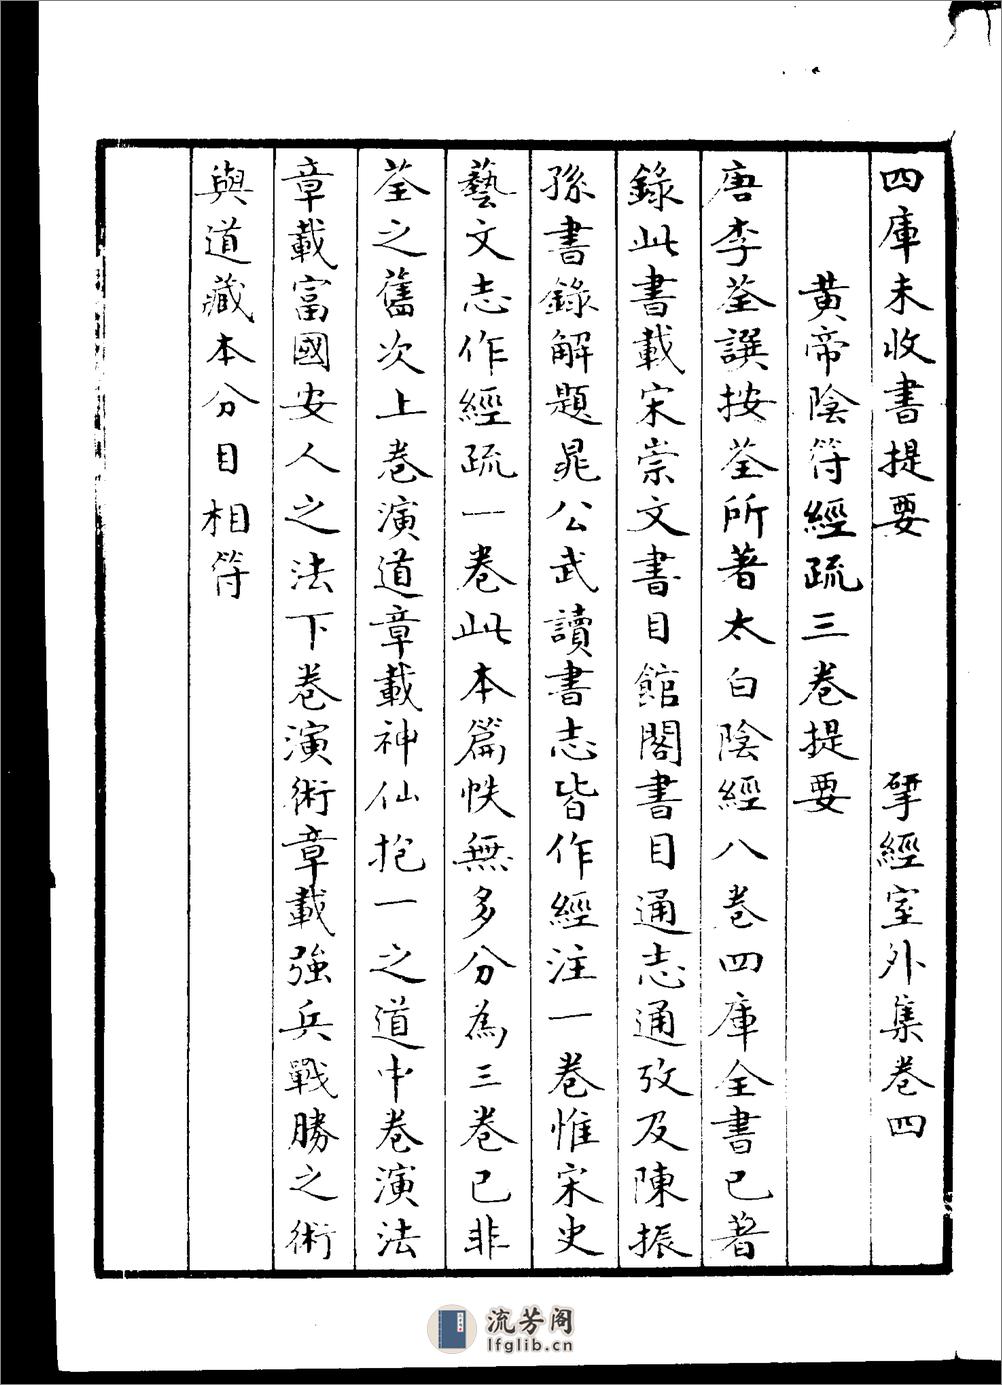 四庫未收書提要 揅經室外集卷四
黃帝陰符經疏三卷提要
唐李荃譔按荃所著太白陰經八卷四庫全書已著
錄此書載宋崇文書目館閣書目通志通攷及陳振
孫書錄解題晁公武讀書志皆作經注一卷惟宋史
藝文志作經疏一卷此本篇帙無多分為三卷已非
荃之舊次上卷演道章載神仙抱一之道中卷演法
章載富國安人之法下卷演術章載強兵戰勝之術
與道藏本分目相符
流芳阁
lfglib.cn